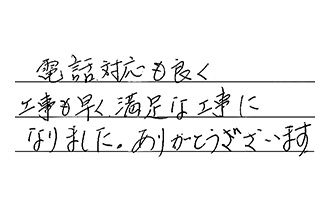 電話対応も良く
工事も早く満足な工事に
なりました。ありがとうございます